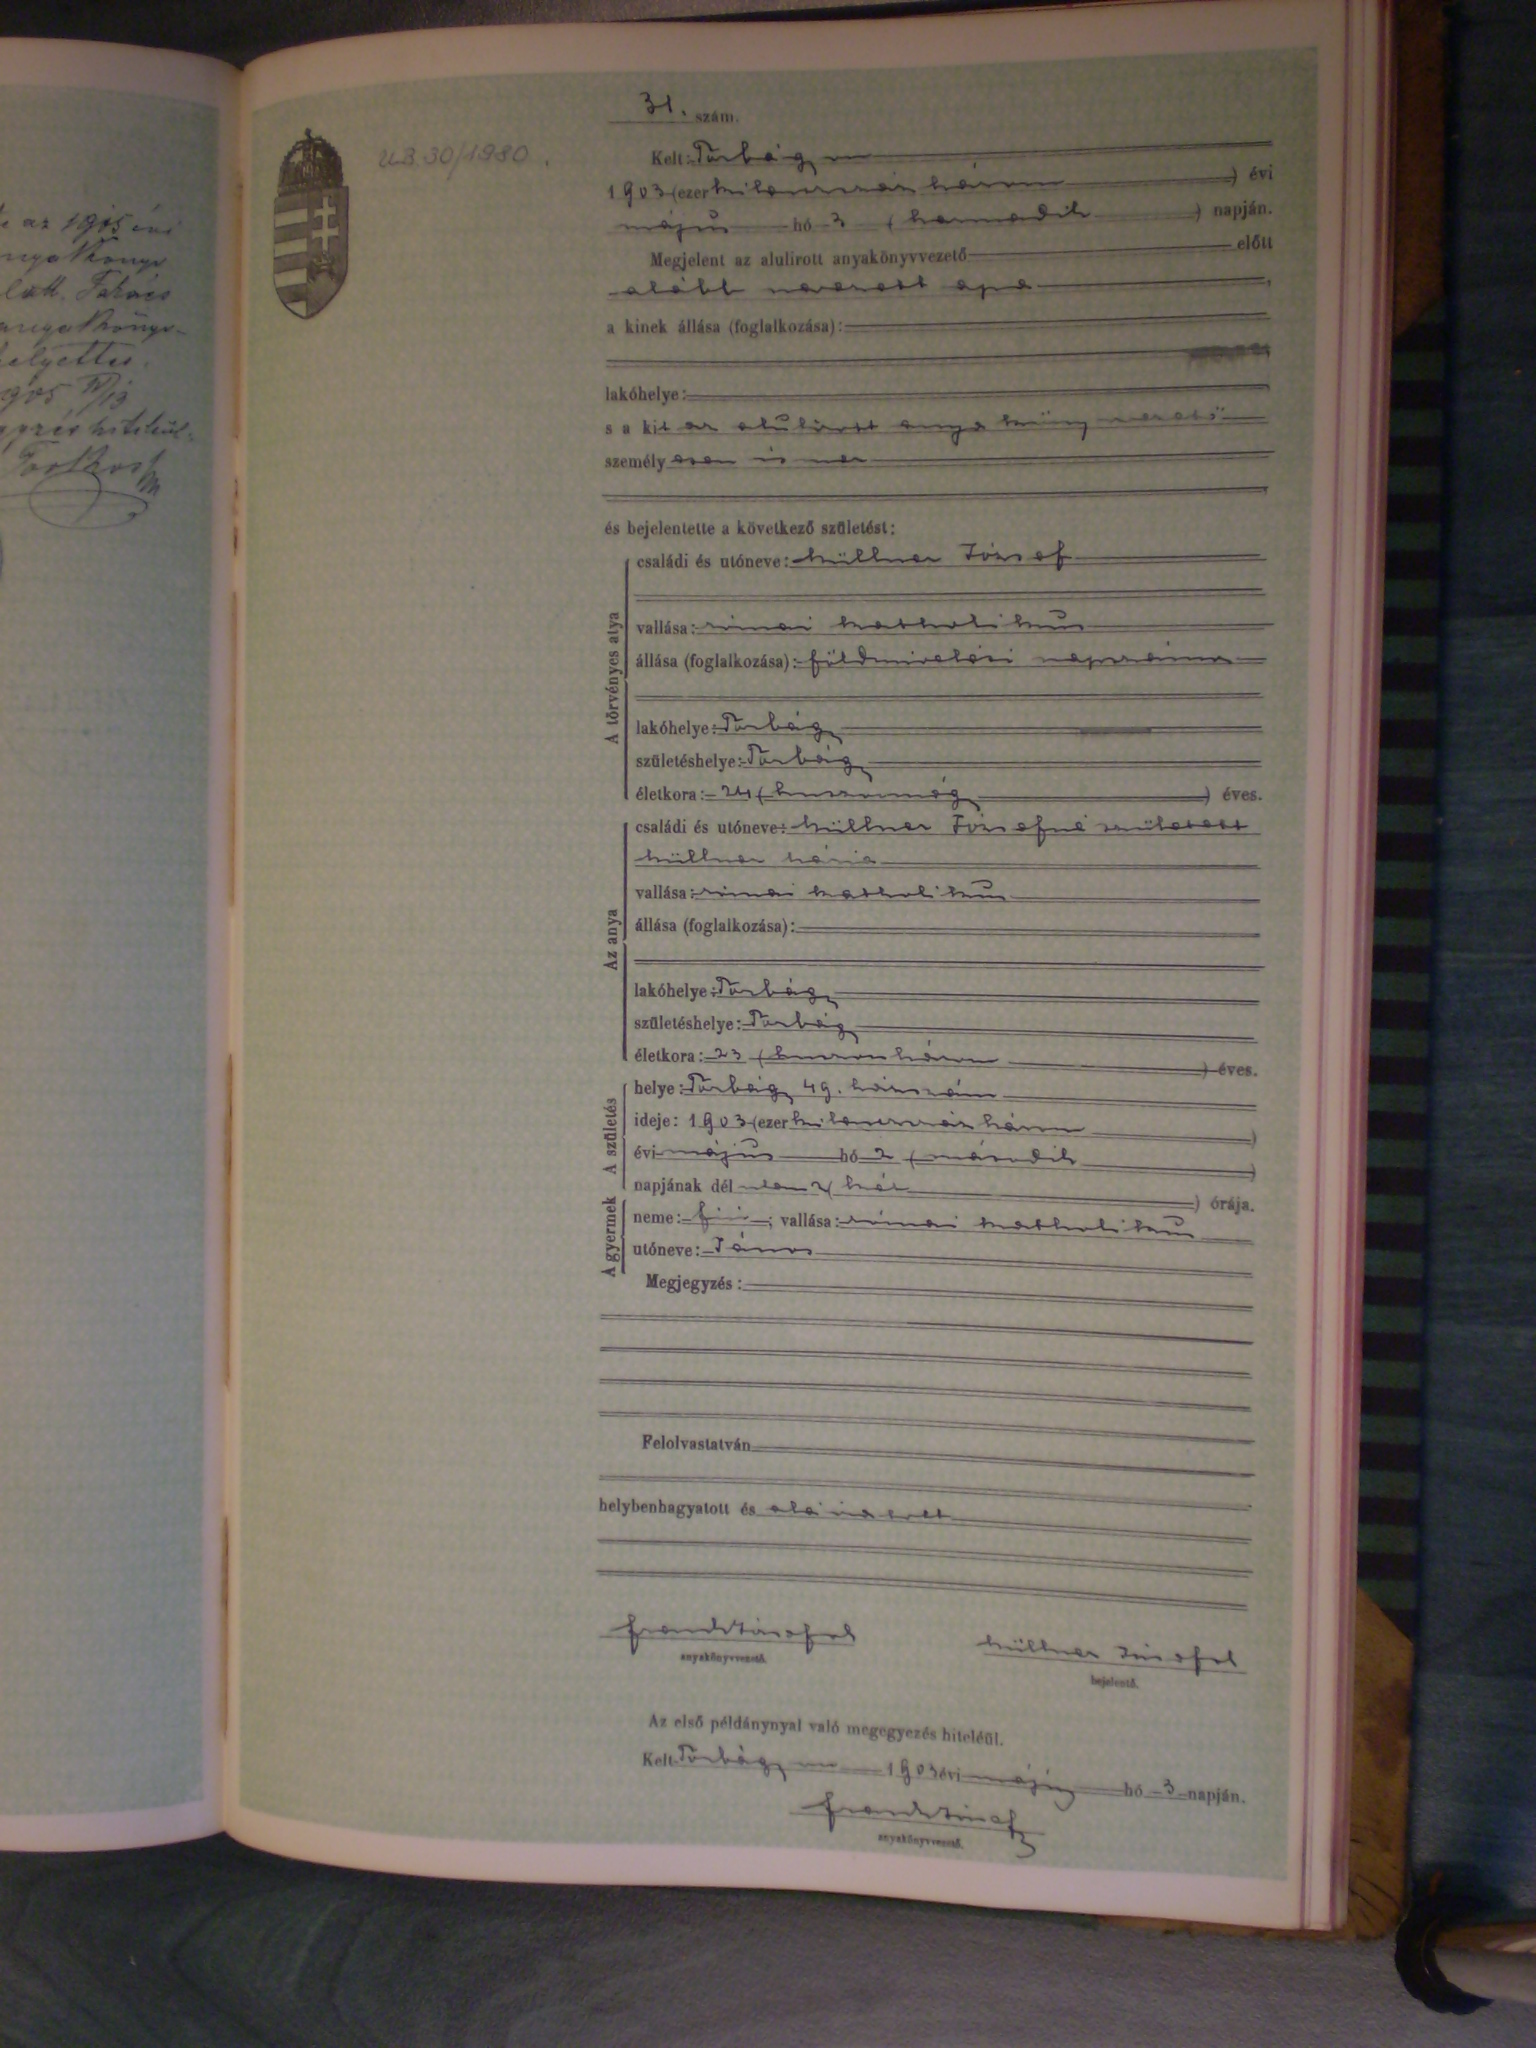 az 1905 évi
31. szám.
UB 30/1980.
Kelt: Törbágyon
1903 (ezer kilencszáz három ) évi
május hó 3 (harmadik ) napján.
Megjelent az alulirott anyakönyvvezető előtt
alább nevezett apa
a kinek állása (foglalkozása):
lakóhelye:
s a kit az alulirott anyakönyvvezető
személyesen ismer
és bejelentette a következő születést:
A törvényes atya
családi és utóneve: Müllner József
vallása: római katholikus
állása (foglalkozása): földmivelési napszámos
lakóhelye: Törbágy
születéshelye: Törbágy
életkora: 24 (huszonnégy ) éves.
Az anya
családi és utóneve: Müllner Józsefné született
Müllner Mária
vallása: római katholikus
állása (foglalkozása):
lakóhelye: Törbágy
születéshelye: Törbágy
életkora: 23 (huszonhárom ) éves.
A születés
helye: Törbágy 49. házszám
ideje: 1903 (ezer kilencszáz három )
évi május hó 2 (második )
napjának dél után 2 (két ) órája.
A gyermek
neme: fiú; vallása: római katholikus
utóneve: János
Megjegyzés:
Felolvastatván
helybenhagyatott és aláiratott
anyakönyvvezető.
Müllner József
bejelentő.
Az első példánynyal való megegyezés hiteléül.
Kelt Törbágyon 1903 évi május hó 3 napján.
anyakönyvvezető.